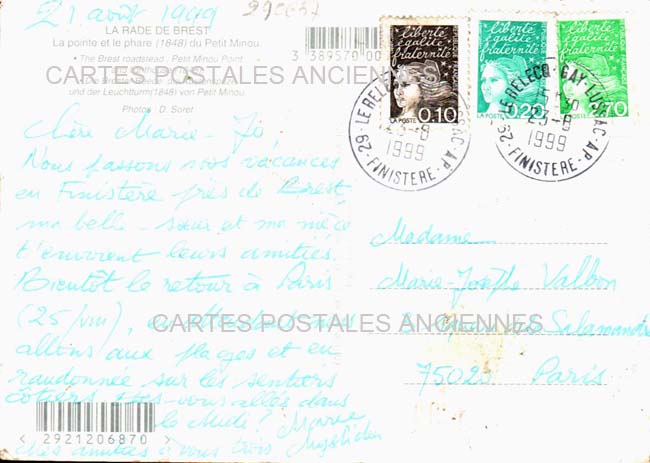 21 août 1999
LA RADE DE BREST
La pointe et le phare (1848) du Petit Minou.
• The Brest roadstead : Petit Minou Point
und der Leuchtturm (1848) von Petit Minou.
Photos : D. Soret
3 389570 00
CARTES POSTALES ANCIENNES
Chère Marie-Jo,
Nous passons nos vacances
en Finistère près de Brest,
ma belle-sœur et ma nièce
t'envoient leurs amitiés.
Bientôt le retour à Paris
(25 juin),
allons aux plages et en
randonnée sur les sentiers
côtiers vous allés dans
le Midi ?
Mes amitiés à vous trois
< 2921206870 >
liberté
égalité
fraternité
LA POSTE
0,10
liberté
égalité
fraternité
LA POSTE
0,20
liberté
égalité
fraternité
0,70
29 - LE RELECQ
AP - FINISTERE
1999
29 - LE RELECQ - GAY-LUSSAC - AP
23-8
1999
FINISTERE
Madame
Marie-Josèphe Valbon
Salamandre
75020 Paris
CARTES POSTALES ANCIENNES